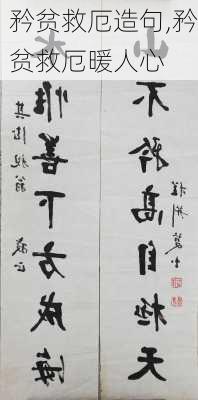 矜贫救厄造句,矜
贫救厄暖人心
山不矜高自極天
水惟善下方成海